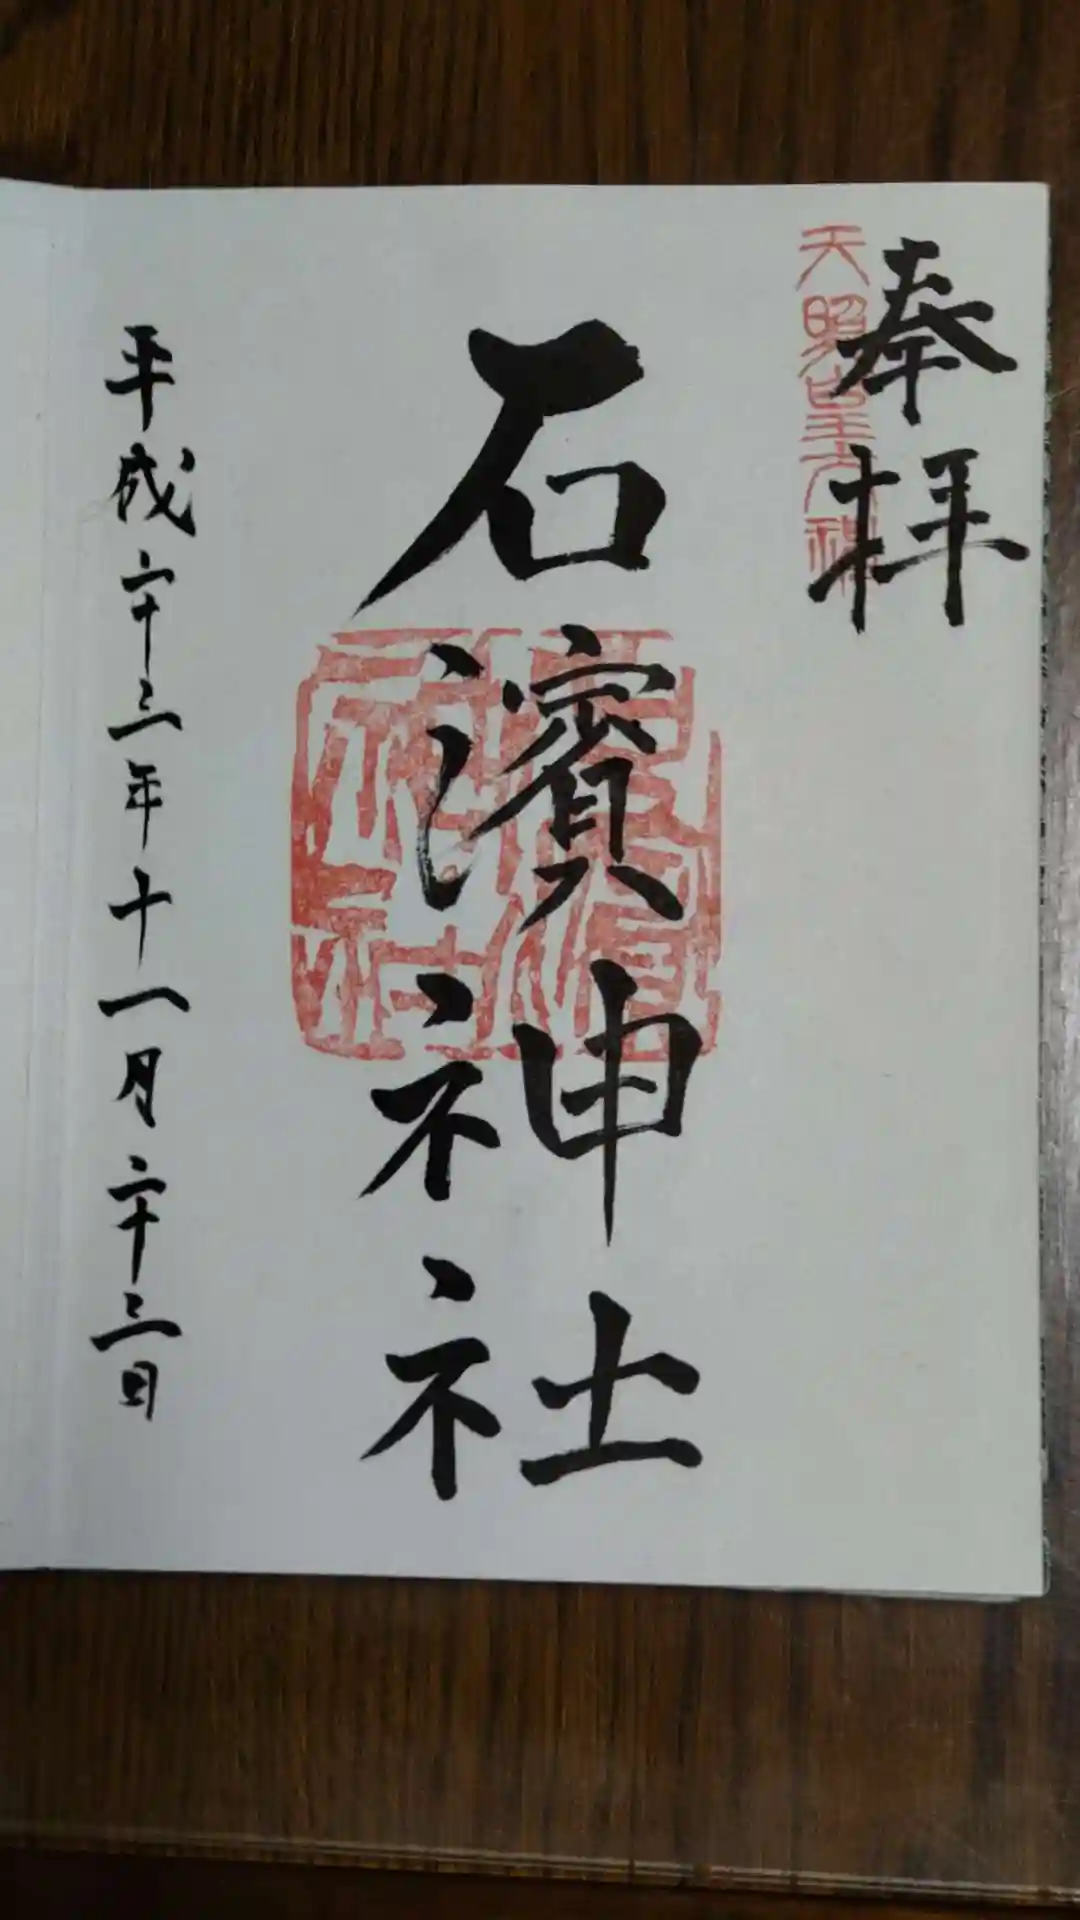 奉拝
天照皇大神
石濱神社
平成二十三年十一月二十三日